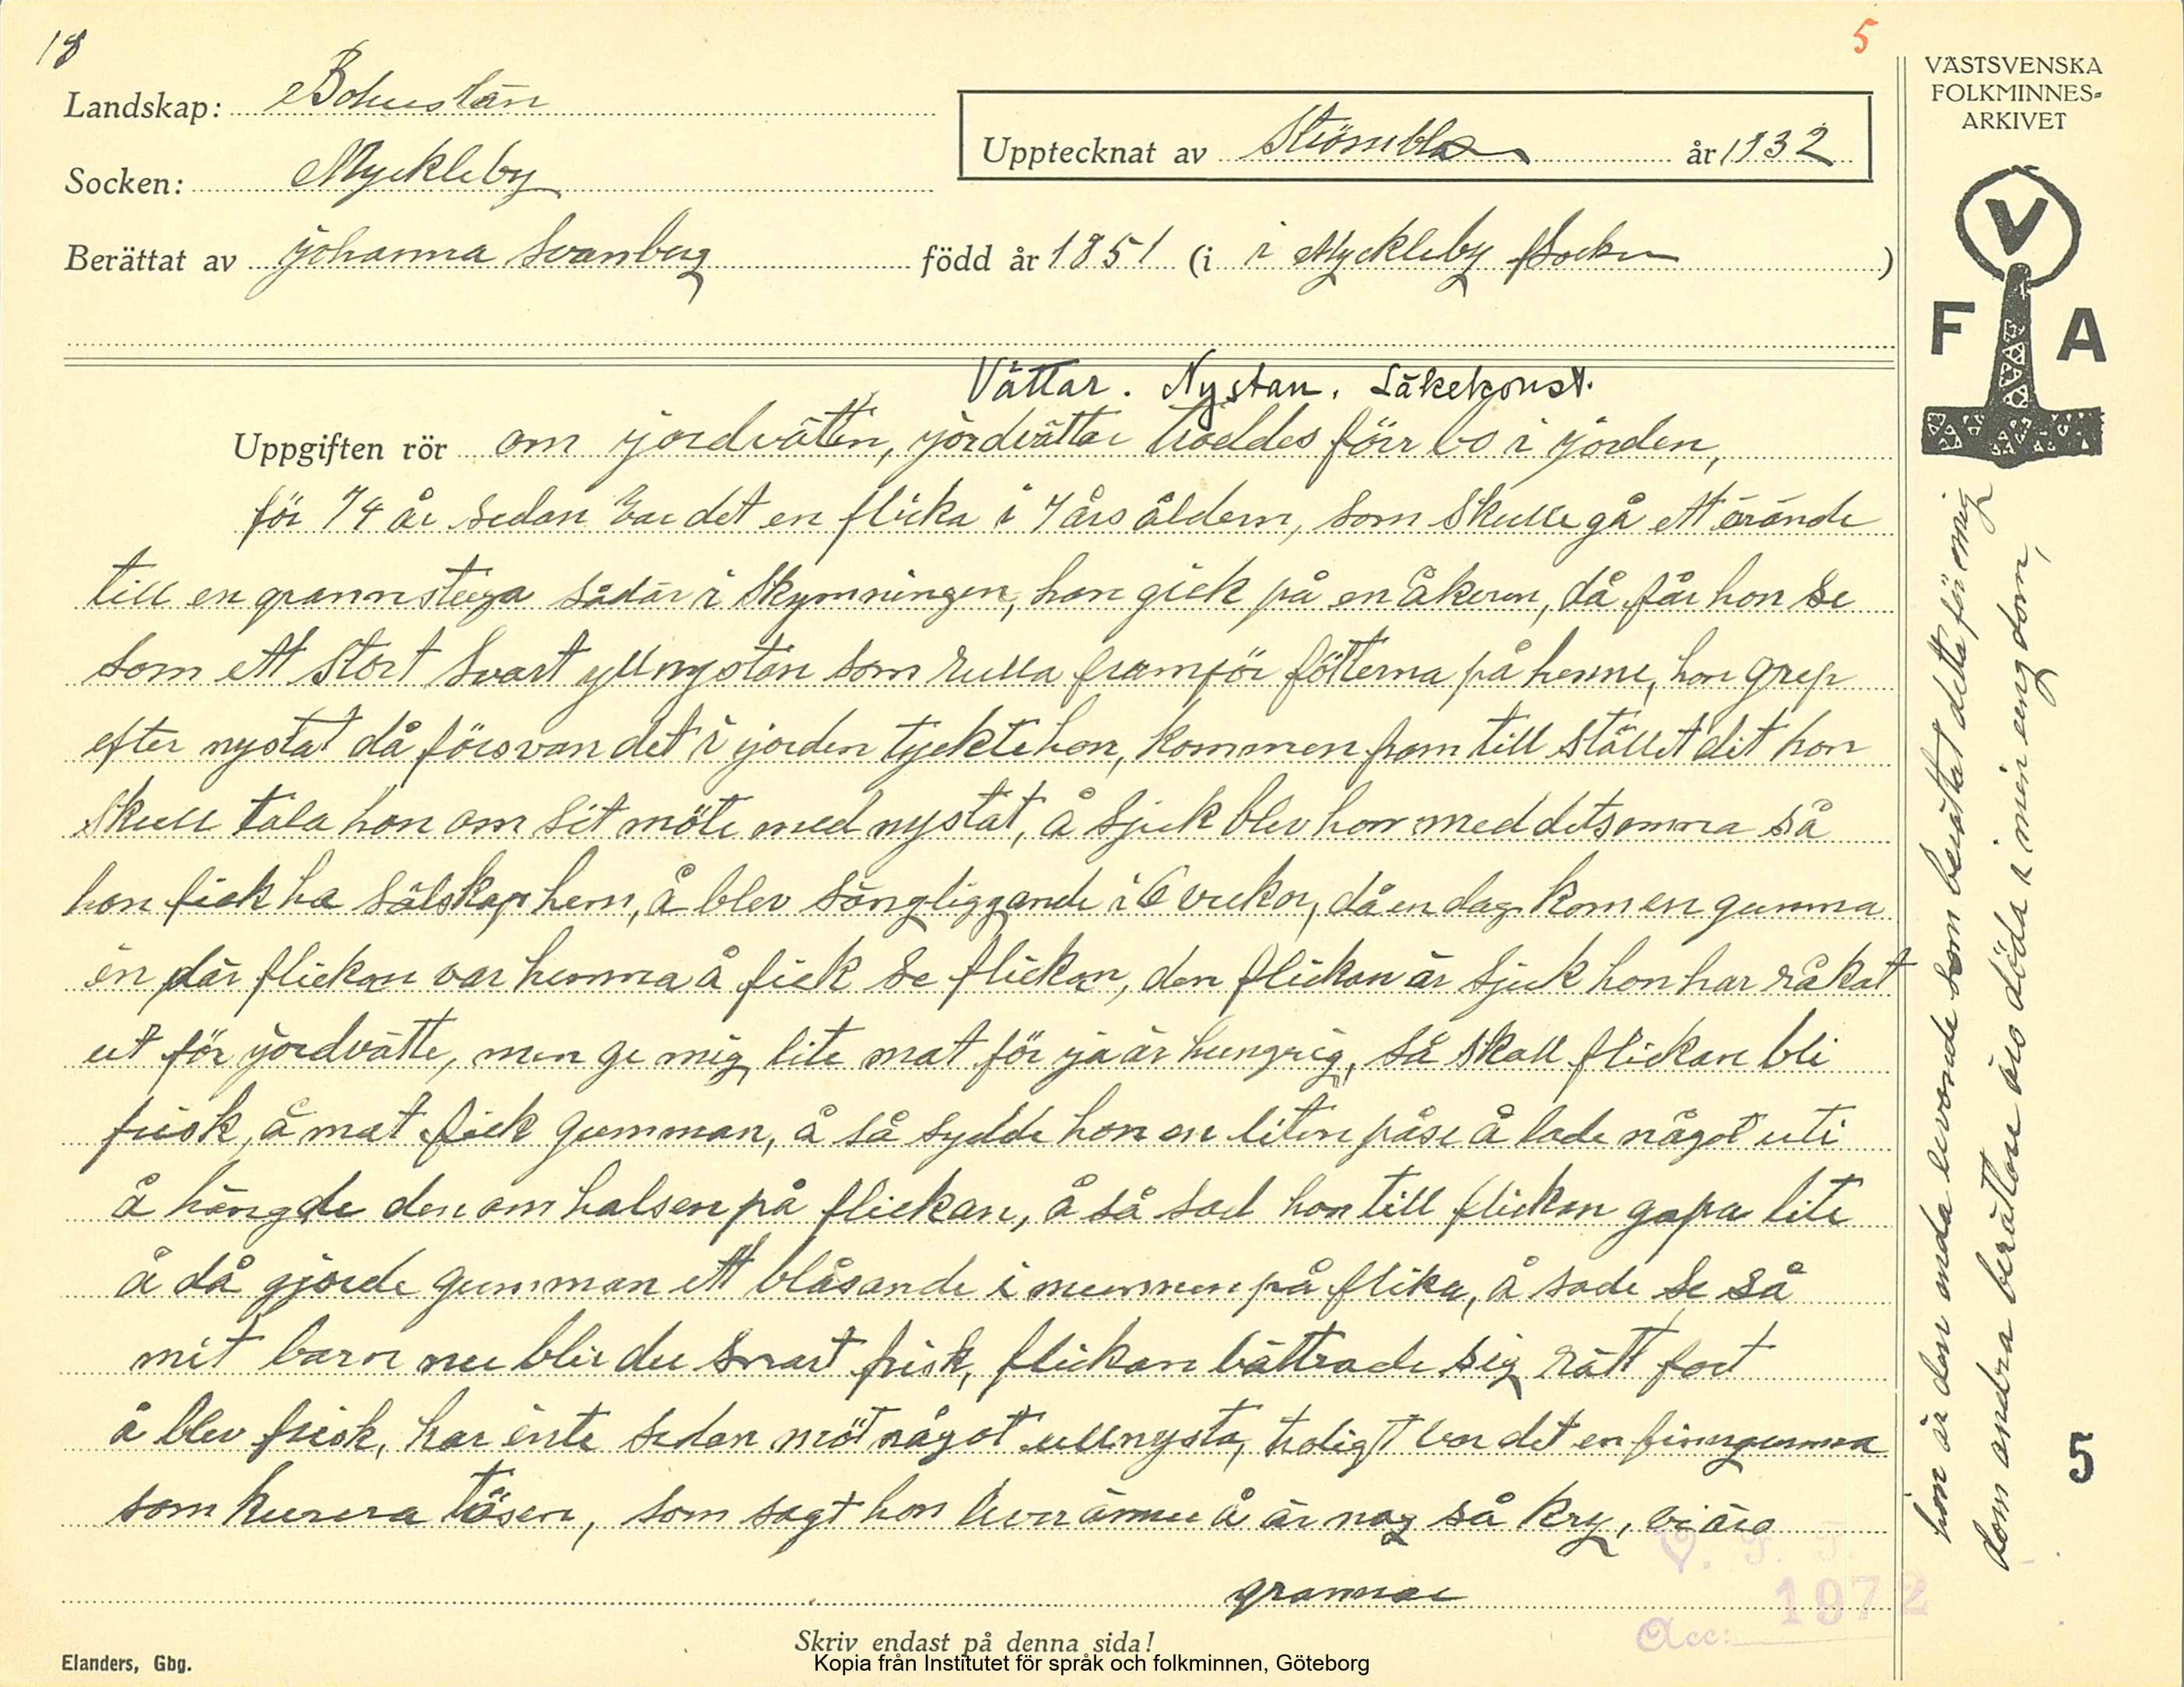 18
5
Landskap: Bohuslän
Socken: Myckleby
Berättat av Johanna Svanberg född år 1851 (i i Myckleby Socken)
Upptecknat av år 1932
VÄSTSVENSKA
FOLKMINNES-
ARKIVET
V
F A
Vättar. Nystan. Läkekonst.
Uppgiften rör om jordvätten, jordvättar troddes förr bo i jorden,
för 74 år sedan var det en flicka i 7 års åldern, som skulle gå ett ärände
till en grannstuga sådär i skymningen, hon gick på en åkeren, då får hon se
som ett stort svart yllnystan som rulla framför fötterna på henne, hon grep
efter nystat då försvan det i jorden tyckte hon, kommen fram till stället dit hon
skull tala hon om sit möte med nystat, å sjuk blev hon med detsamma så
hon fick ha sälskap hem, å blev sängliggande i 6 veckor, då en dag kom en gumma
in där flickan var hemma å fick se flickan, den flickan är sjuk hon har råkat
ut för jordvätte, men ge mig lite mat för ja är hungrig, så skall flickan bli
frisk, å mat fick gumman, å så sydde hon en liten påse å lade något uti
å hängde den om halsen på flickan, å så sad hon till flickan gapa lite
å då gjorde gumman ett blåsande i munnen på flika, å sade se så
mit barn nu blir du snart frisk, flickan bättrade sig rätt fort
å blev frisk, har inte sedan möt något ullnysta, troligt var det en finngumma
som kurera tösen, som sagt hon lever ännu å är nog så kry, vi äro
grannar
hon är den enda levande som berättat detta för mig
dom andra berättare äro döda i min ungdom,
5
V. F. F.
1972
Acc:
Skriv endast på denna sida!
Elanders, Gbg.
Kopia från Institutet för språk och folkminnen, Göteborg